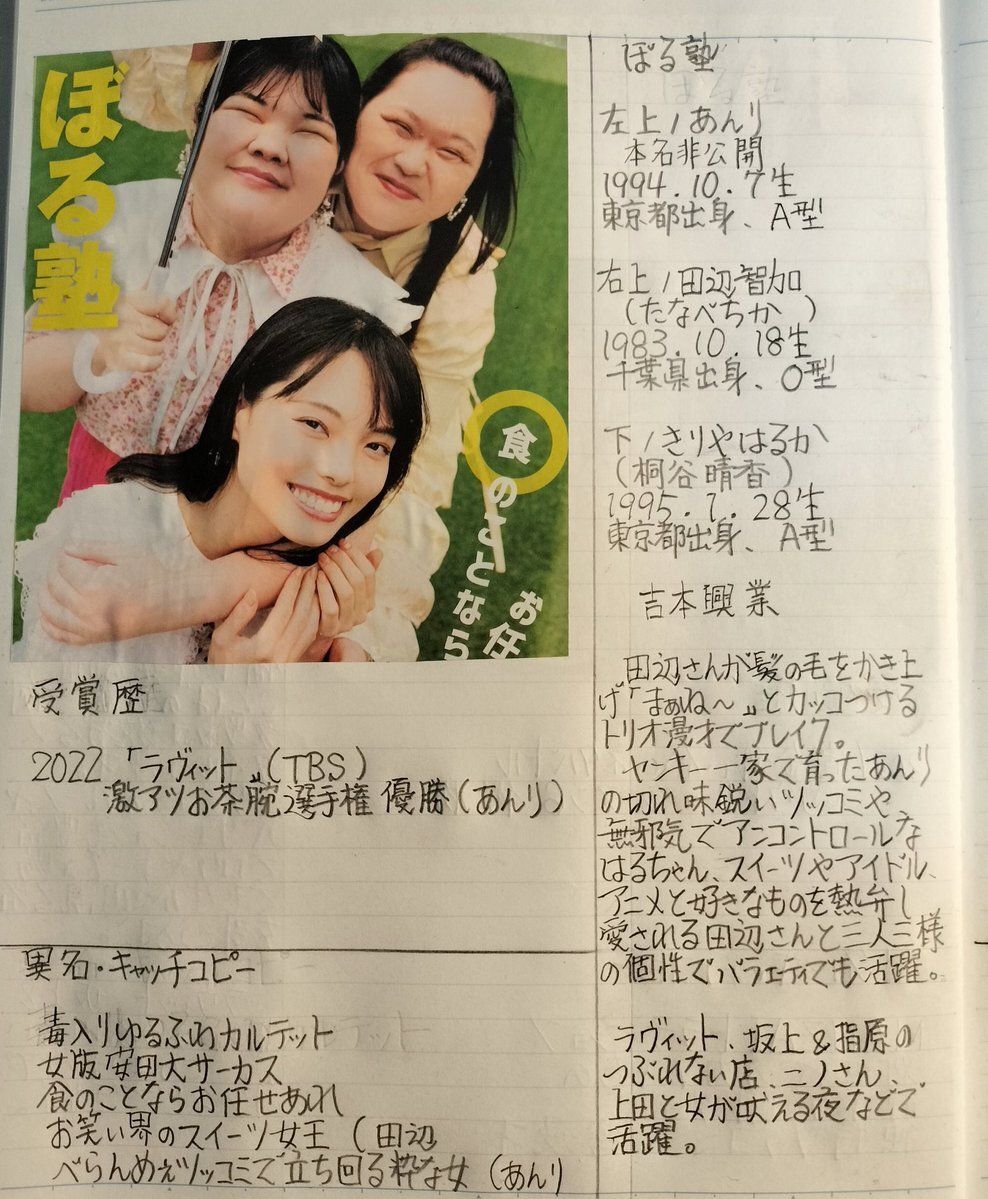 ぼる塾
食のことなら
お任
受賞歴
2022 「ラヴィット」(TBS)
激アツお茶碗選手権 優勝(あんり)
異名・キャッチコピー
毒入りゆるふわカルテット
女版安田大サーカス
食のことならお任せあれ
お笑い界のスイーツ女王(田辺
べらんめぇツッコミで立ち回る粋な女(あんり
ぼる塾
左上/あんり
本名非公開
1994.10.7生
東京都出身、A型
右上/田辺智加
(たなべちか)
1983.10.18生
千葉県出身、O型
下/きりやはるか
(桐谷晴香)
1995.1.28生
東京都出身、A型
吉本興業
田辺さんが髪の毛をかき上
げ「まぁね〜」とカッコつける
トリオ漫才でブレイク。
ヤンキー一家で育ったあんり
の切れ味鋭いツッコミや
無邪気でアンコントロールな
はるちゃん、スイーツやアイドル、
アニメと好きなものを熱弁し
愛される田辺さんと三人三様
の個性でバラエティでも活躍。
ラヴィット、坂上&指原の
つぶれない店、ニノさん、
上田と女が吠える夜などで
活躍。